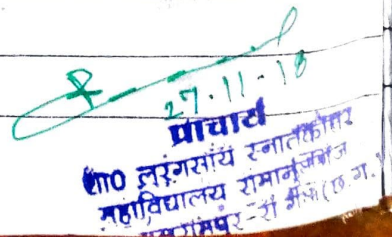 27.11-18
प्राचार्य
शा0 लरंगसाय स्नातकोत्तर
महाविद्यालय रामानुजगंज
(छ.ग.